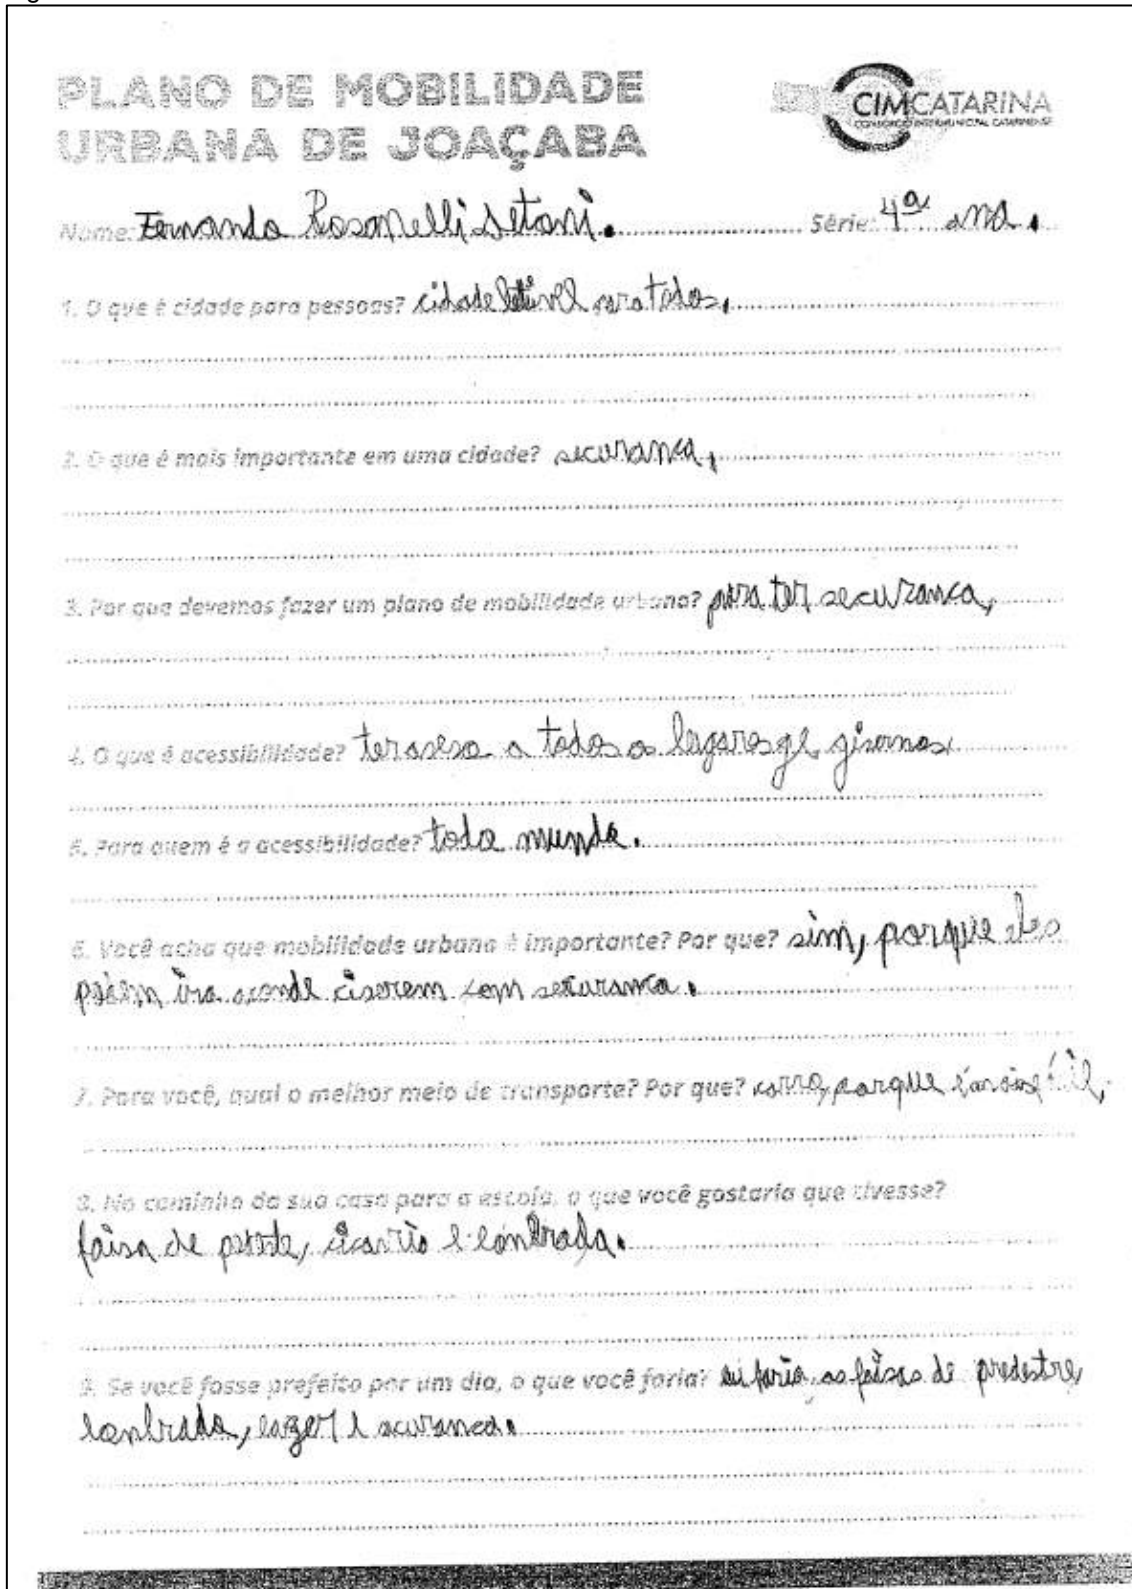 PLANO DE MOBILIDADE
URBANA DE JOAÇABA
CIMCATARINA
CONSÓRCIO INTERMUNICIPAL CATARINENSE
Nome: Fernando Rosonelli Setoni. Série: 4ª ano.
1. O que é cidade para pessoas? cidade para todos.
2. O que é mais importante em uma cidade? securanca,
3. Por que devemos fazer um plano de mobilidade urbana? para ter securanca,
4. O que é acessibilidade? ter aseso a todos os lugares
5. Para quem é a acessibilidade? todo mundo.
6. Você acha que mobilidade urbana é importante? Por que? sim, porque eles
podem ir aonde ciserem com securanca.
7. Para você, qual o melhor meio de transporte? Por que? carro, porque
8. No caminho da sua casa para a escola, o que você gostaria que tivesse?
faisa de e lonbrada.
9. Se você fosse prefeito por um dia, o que você faria? eu faria as faisas de predestre,
lonbrada, lazer e securanca.